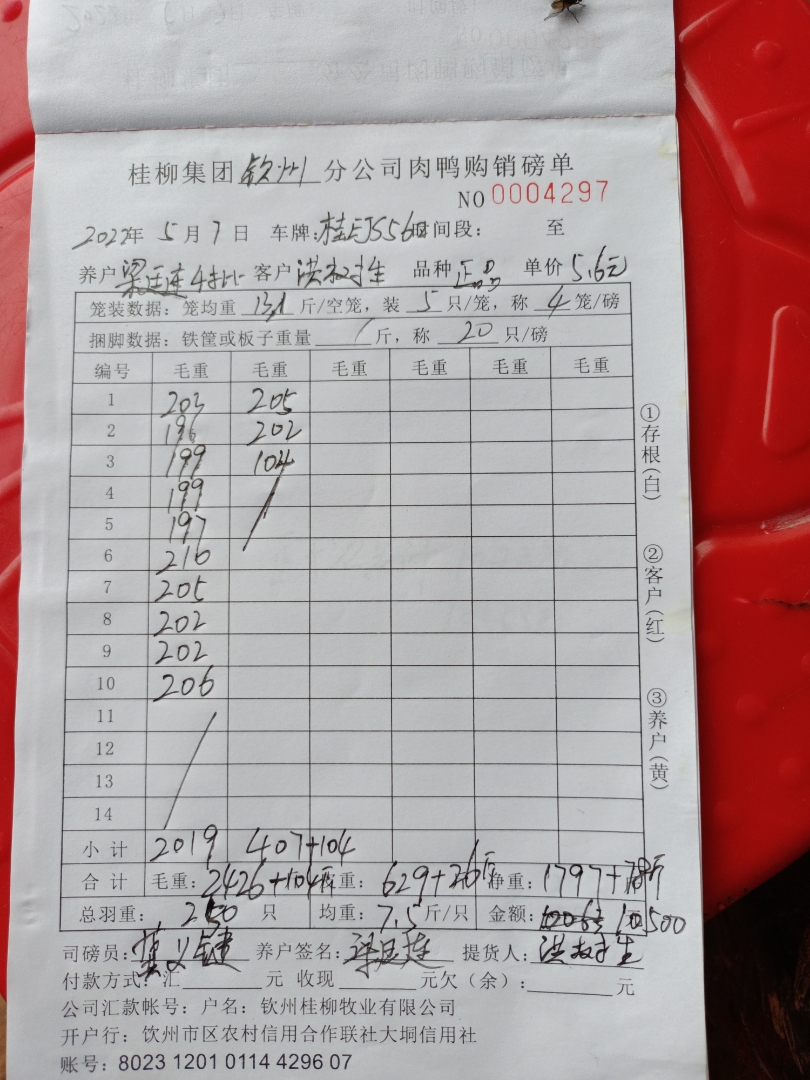 桂柳集团 钦州 分公司肉鸭购销磅单
NO 0004297
2022年 5 月 7 日 车牌: 时间段: 至
养户 客户 品种 正品 单价 5.6元
笼装数据: 笼均重 13.1 斤/空笼, 装 5 只/笼, 称 4 笼/磅
捆脚数据: 铁筐或板子重量 / 斤, 称 20 只/磅
编号 毛重 毛重 毛重 毛重 毛重 毛重
1 203 205
2 196 202
3 199 104
4 199
5 197
6 210
7 205
8 202
9 202
10 206
11
12
13
14
小计 2019 407+104
合计 毛重: 2426+104斤 筐重: 629+26斤 净重: 1797+78斤
总羽重: 250 只 均重: 7.5 斤/只 金额: 10500
司磅员: 养户签名: 提货人:
付款方式: 汇 元 收现 元欠(余): 元
公司汇款帐号: 户名: 钦州桂柳牧业有限公司
开户行: 钦州市区农村信用合作联社大垌信用社
账号: 8023 1201 0114 4296 07
①存根(白)
②客户(红)
③养户(黄)